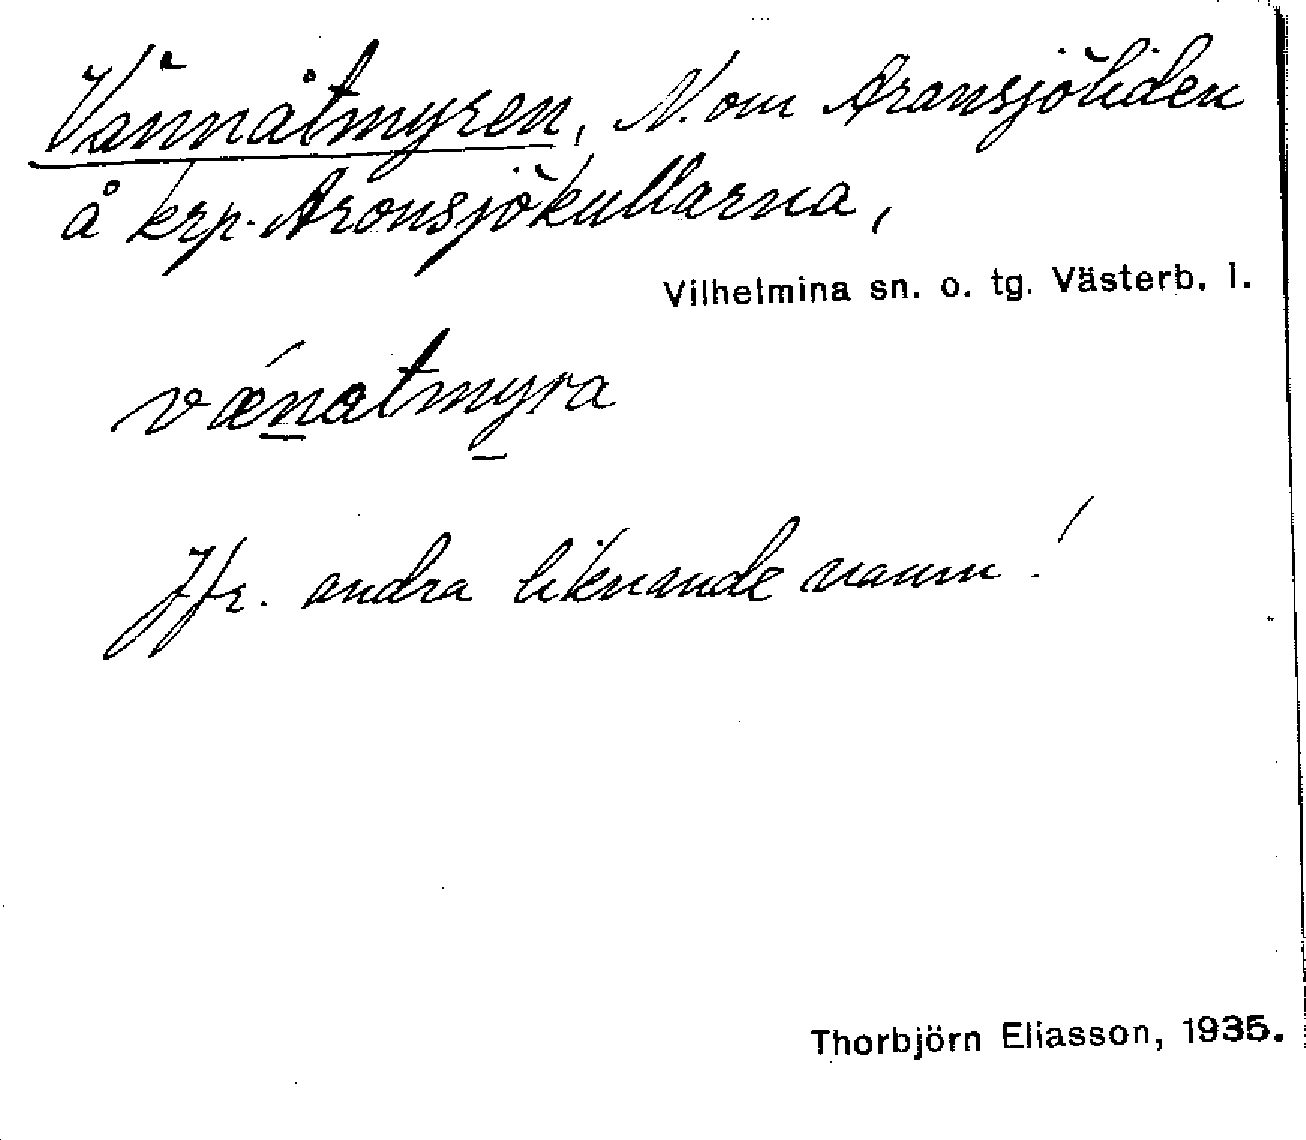 Vännåtmyren, N. om Aronsjöliden
å krp. Aronsjökullarna,
Vilhelmina sn. o. tg. Västerb. l.
vǽnatmyra
Jfr. andra liknande namn!
Thorbjörn Eliasson, 1935.